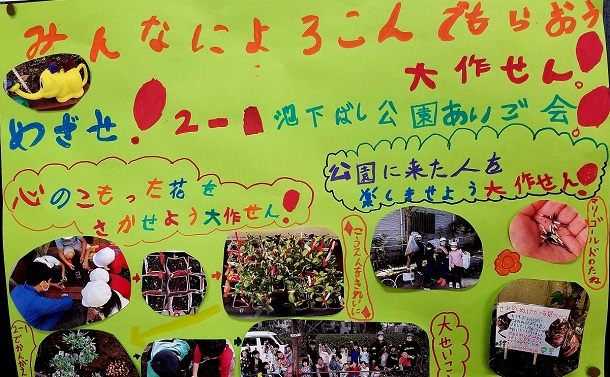 みんなによろこんでもらおう
大作せん!
めざせ!2-1池下ばし公園あいご会!
心のこもった花を
さかせよう大作せん!
公園に来た人を
楽しませよう大作せん!
マリーゴールドのたね